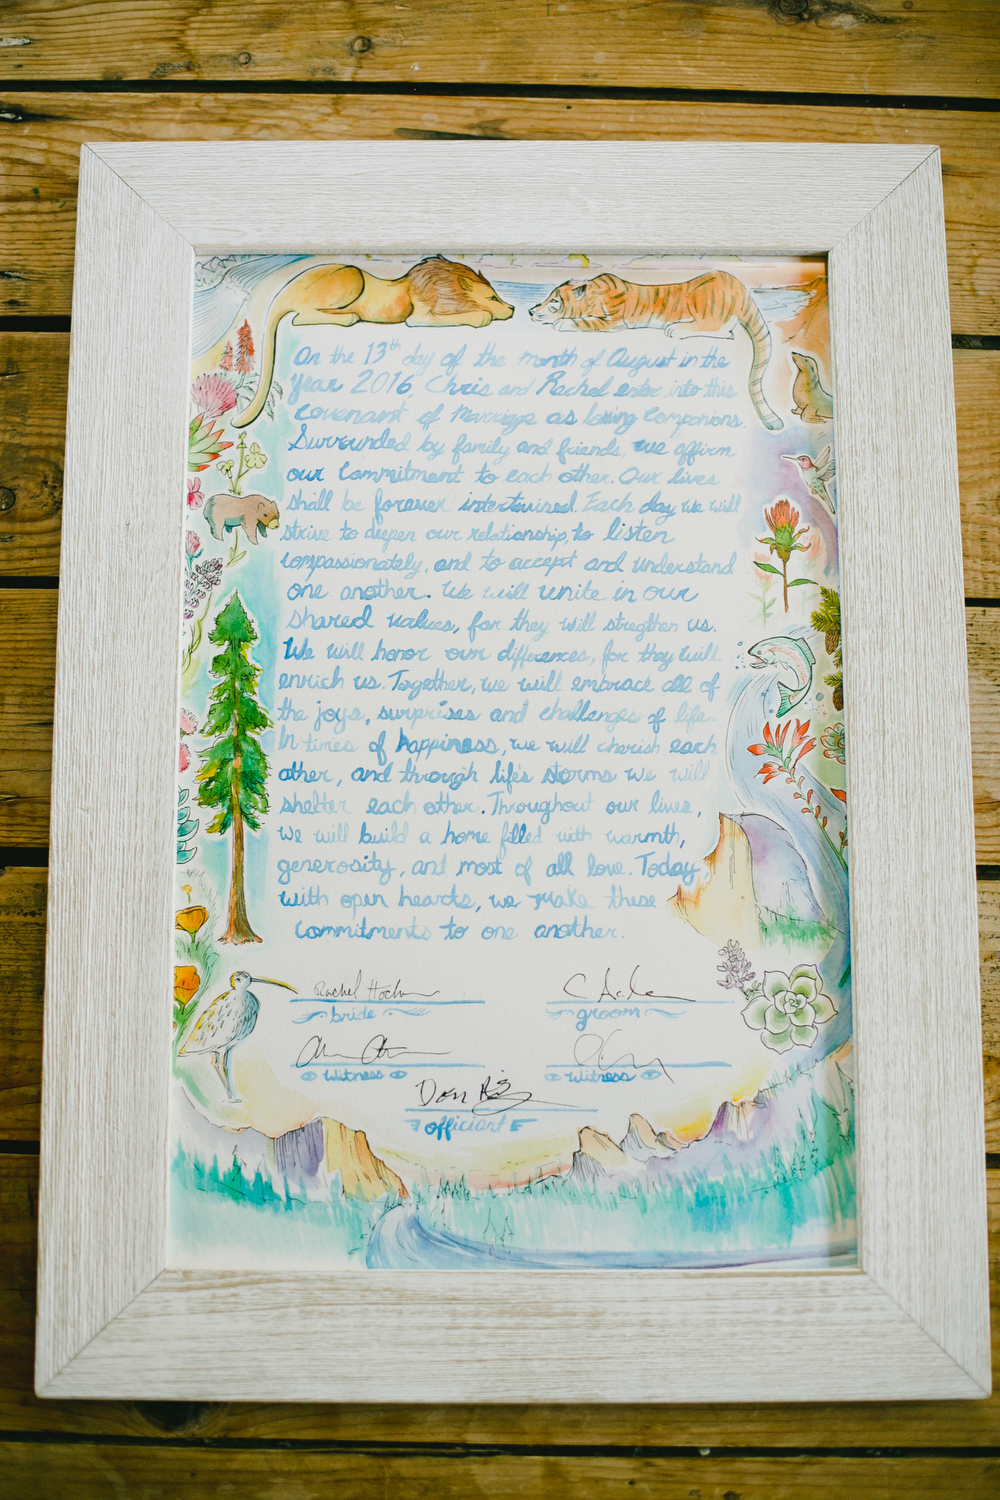 On the 13th day of the month of August in the
year 2016, Chris and Rachel enter into this
covenant of Marriage as loving companions.
Surrounded by family and friends, we affirm
our commitment to each other. Our lives
shall be forever intertwined. Each day we will
strive to deepen our relationship, to listen
compassionately, and to accept and understand
one another. We will unite in our
shared values, for they will stregthen us.
We will honor our differences, for they will
enrich us. Together, we will embrace all of
the joys, surprises and challenges of life.
In times of happiness, we will cherish each
other, and through life's storms we will
shelter each other. Throughout our lives,
we will build a home filled with warmth,
generosity, and most of all love. Today,
with open hearts, we make these
commitments to one another.
Rachel
bride groom
witness witness
Don
officiant